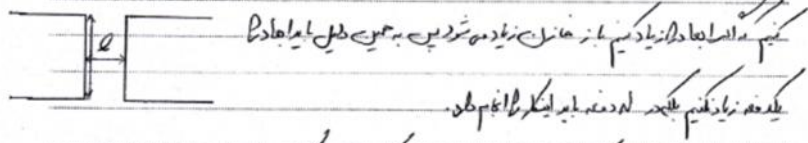 کنیم که اگر ابعاد را زیاد کنیم باز خازن زیاد می شود پس به همین دلیل باید ابعاد را
l
یکدفعه زیاد نکنیم بلکه در دفعه باید اینکار را انجام داد.